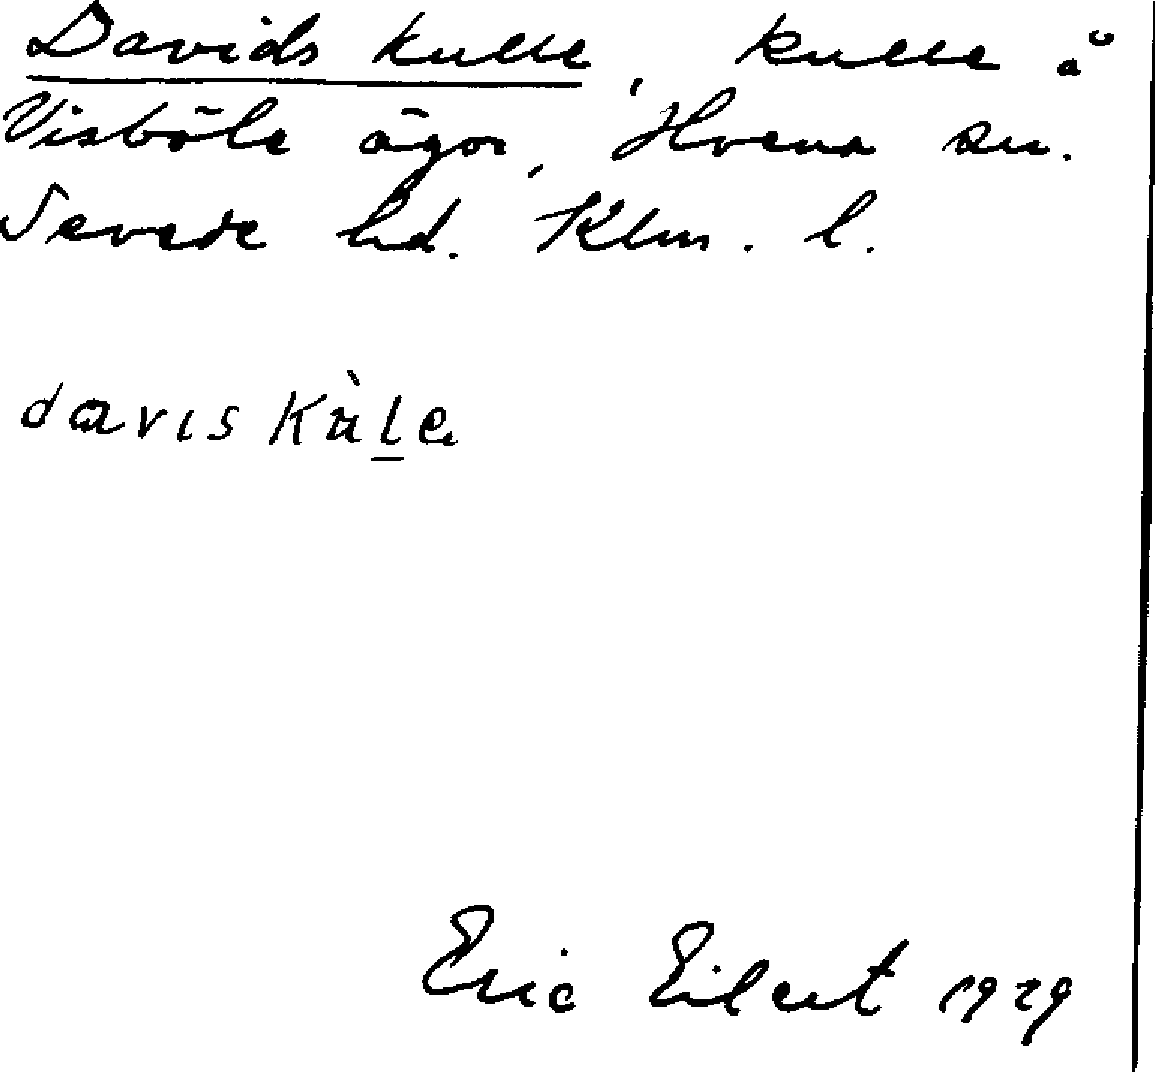 Davids kulle, kulle å
Visböle ägor, Hvena sn.
Sevede hd. Klm. l.
davis kùle
Eric Eilert 1929